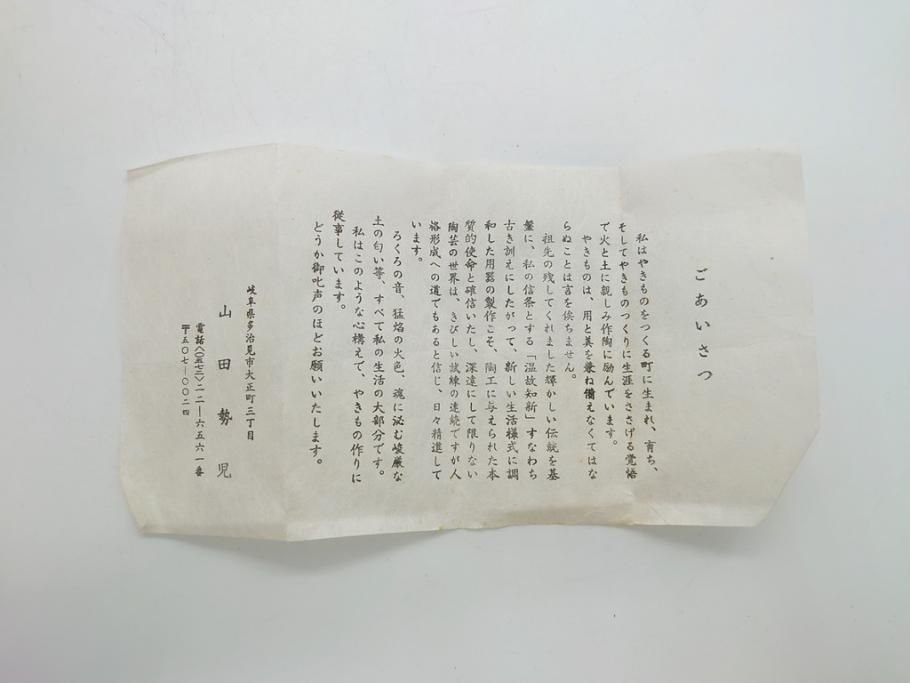 ごあいさつ
私はやきものをつくる町に生まれ、育ち、
そしてやきものつくりに生涯をささげる覚悟
で火と土に親しみ作陶に励んでいます。
やきものは、用と美を兼ね備えなくてはな
らぬことは言を俟ちません。
祖先の残してくれました輝かしい伝統を基
盤に、私の信条とする「温故知新」すなわち
古き訓えにしたがって、新しい生活様式に調
和した用器の製作こそ、陶工に与えられた本
質的使命と確信いたし、深遠にして限りない
陶芸の世界は、きびしい試練の連続ですが人
格形成への道でもあると信じ、日々精進して
います。
ろくろの音、猛焰の火色、魂に泌む峻厳な
土の匂い等、すべて私の生活の大部分です。
私はこのような心構えで、やきもの作りに
従事しています。
どうか御叱声のほどお願いいたします。
岐阜県多治見市大正町三丁目
山田勢児
電話〈〇五七二〉二二―六五六一番
〒五〇七―〇〇二四